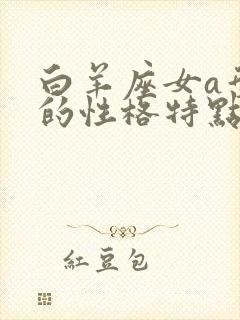 白羊座女a
的性格特點
紅豆包